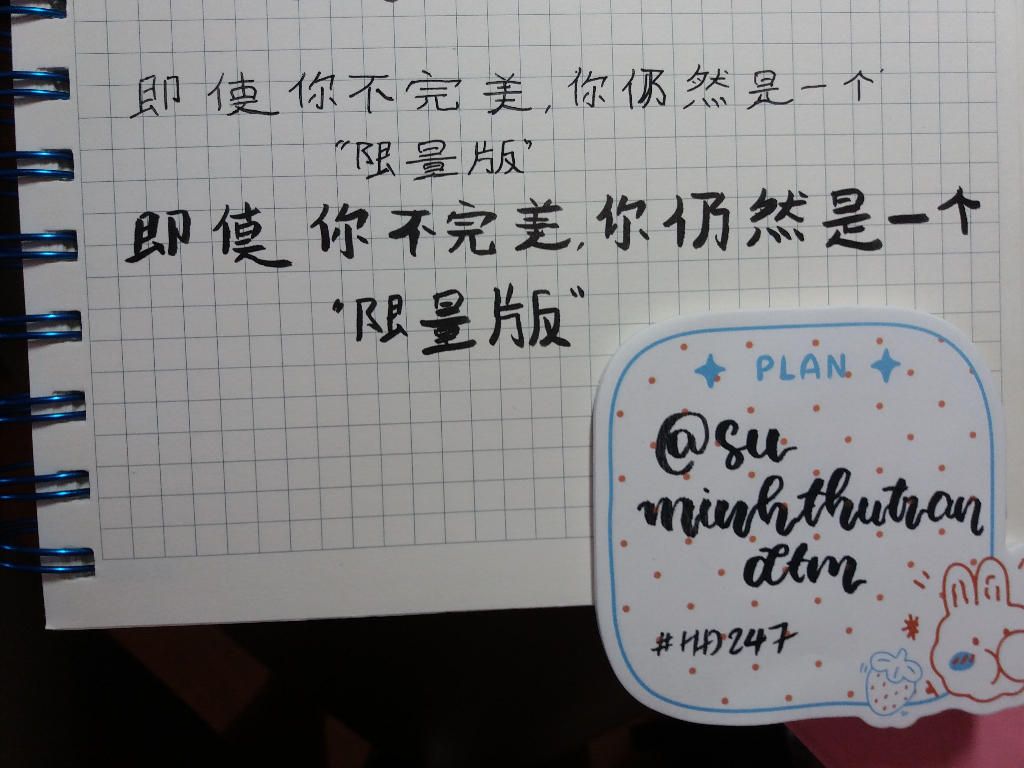 即使你不完美,你仍然是一个
“限量版”
即使你不完美,你仍然是一个
“限量版”
PLAN
@su
minhthutran
dtm
#HD247